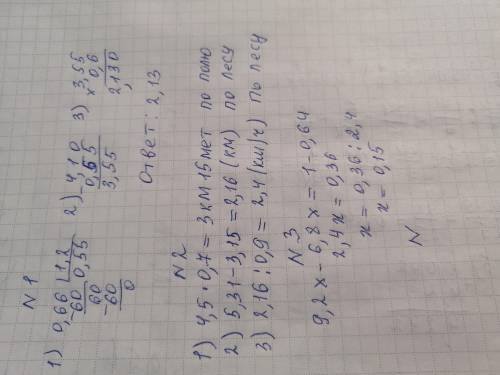 N 1
1) 0,66 | 1,2
60 0,55
60
60
0
2) 4,10
0,55
3,55
3) 3,55
× 0,6
2,130
Ответ: 2,13
N 2
1) 4,5 · 0,7 = 3 км 15 мет по полю
2) 5,31 - 3,15 = 2,16 (км) по лесу
3) 2,16 : 0,9 = 2,4 (км/ч) по лесу
N 3
9,2x - 6,8x = 1 - 0,64
2,4x = 0,36
x = 0,36 : 2,4
x = 0,15
N